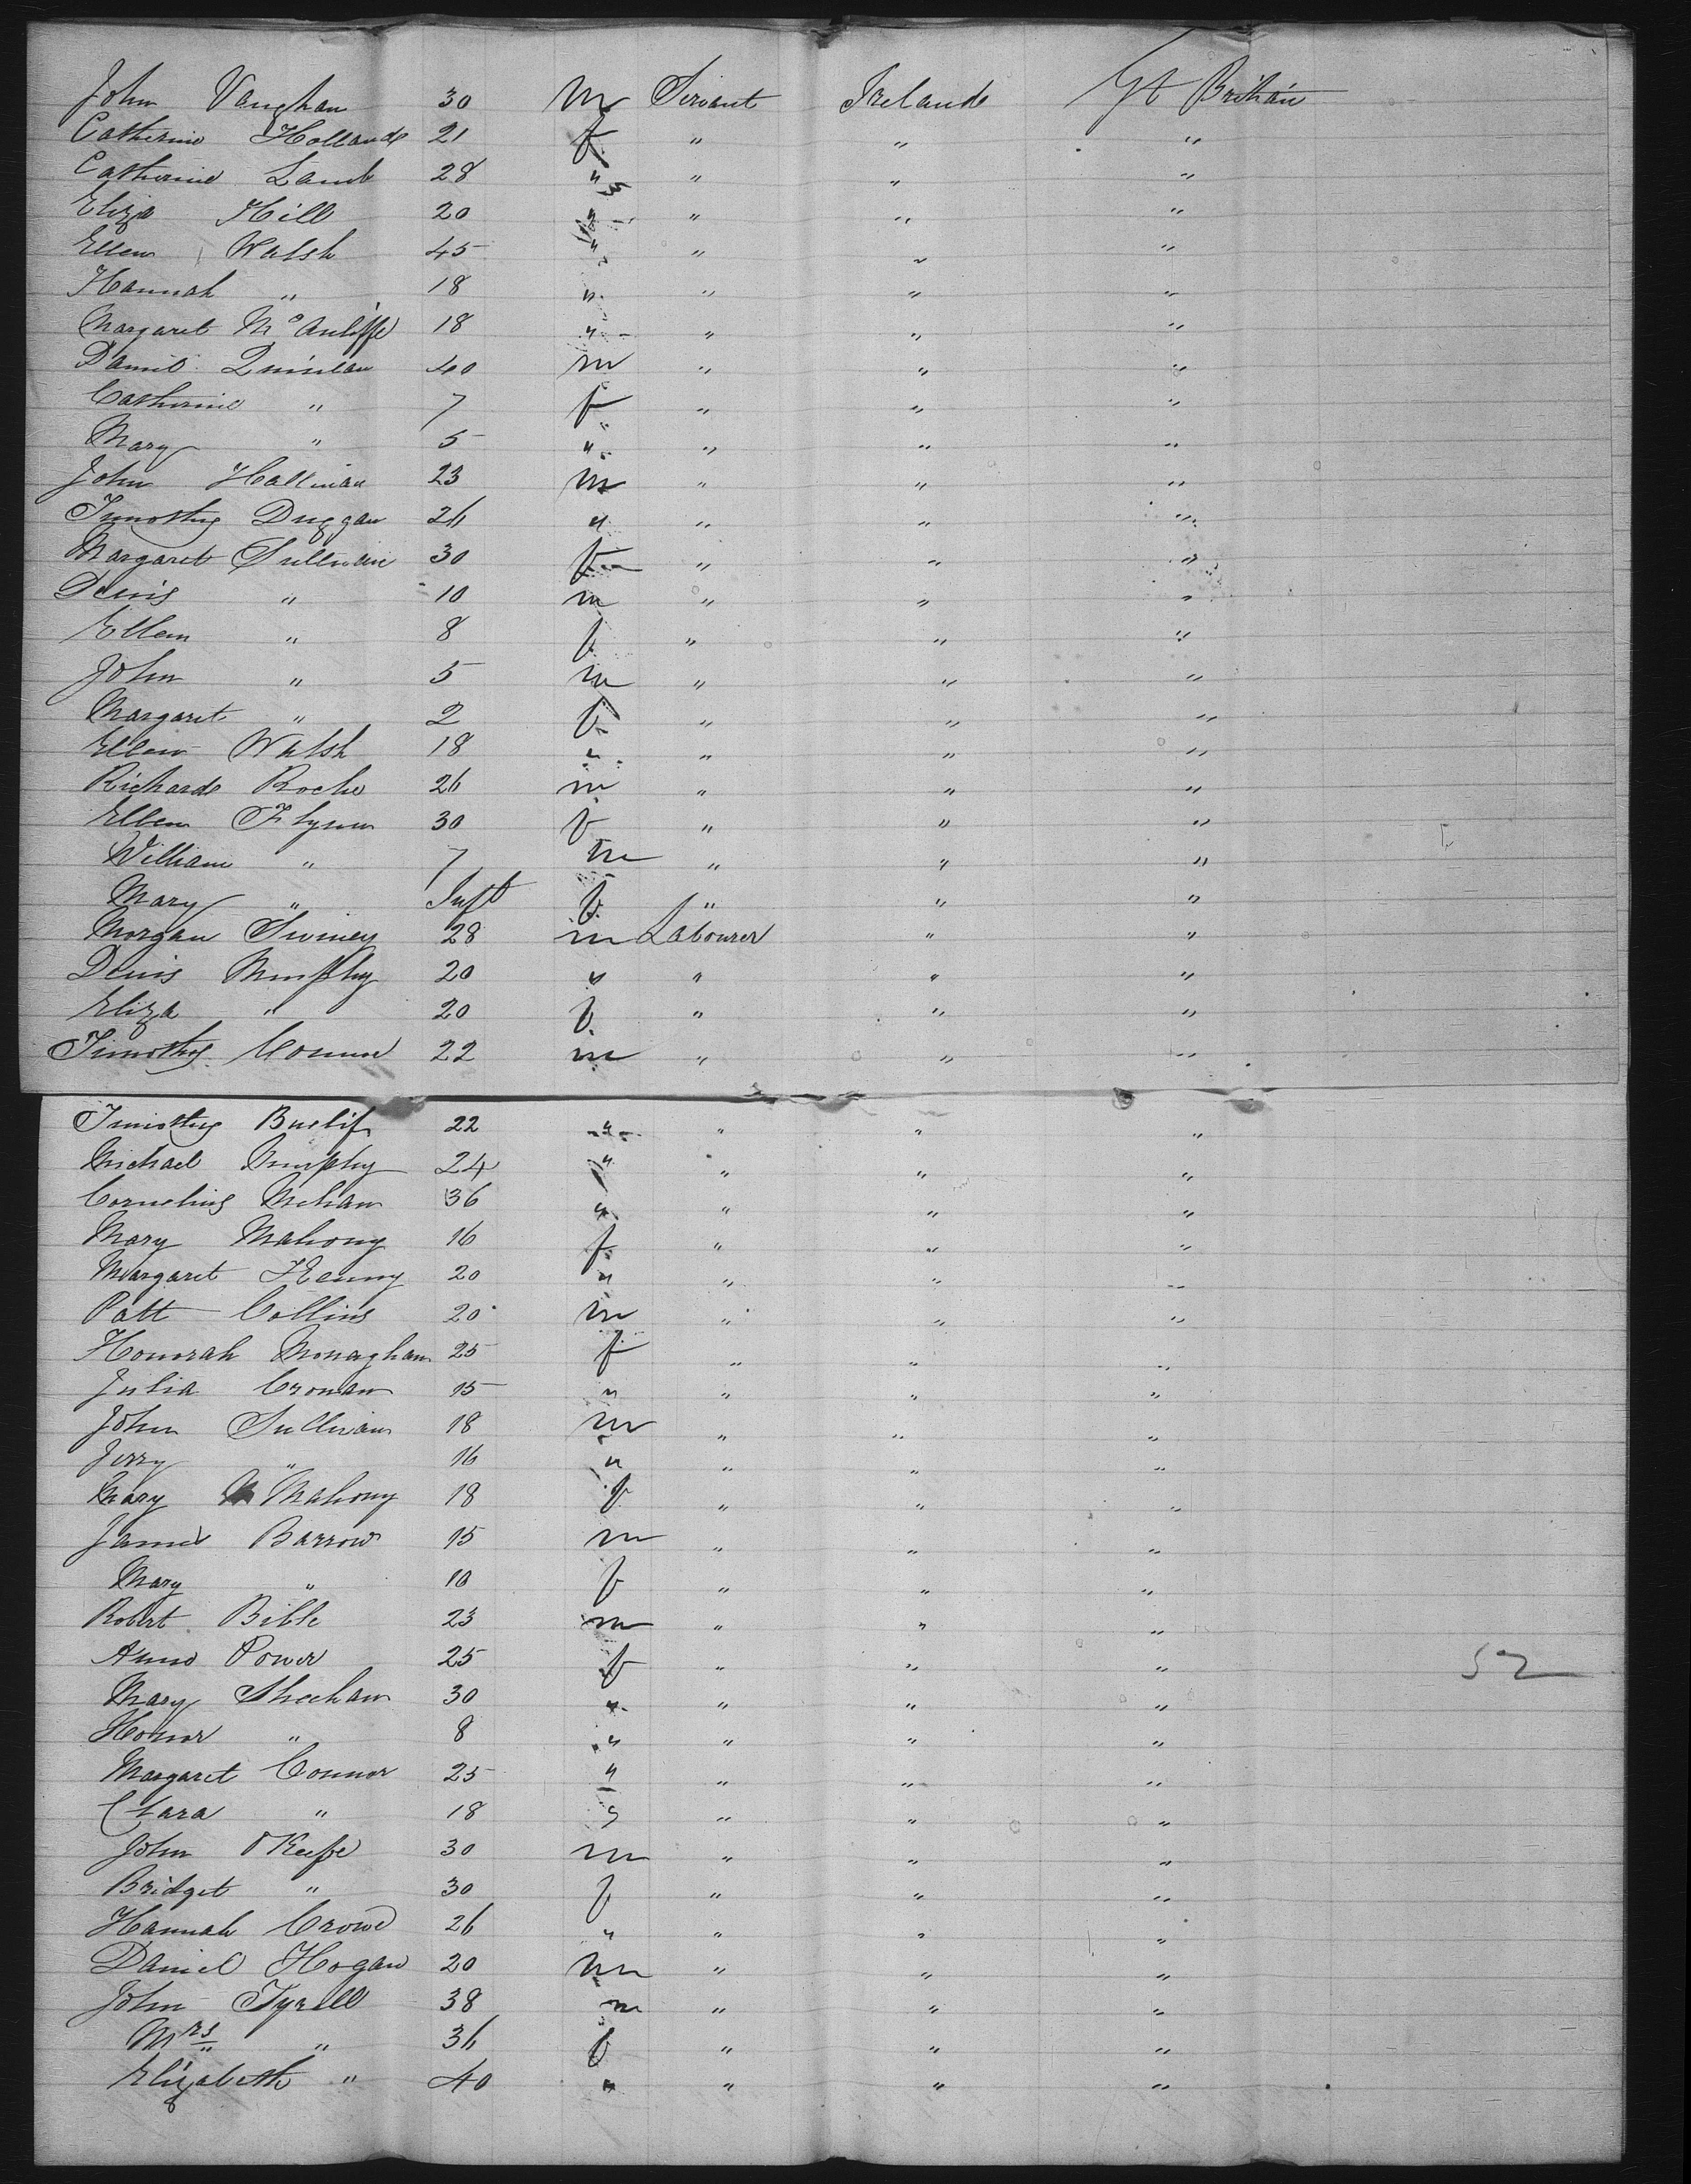 John Vaughan 30 m Servant Ireland Gt Britain
Catherine Holland 21 f " " "
Catherine Lamb 28 " " " "
Eliza Hill 20 " " " "
Ellen Walsh 45 " " " "
Hannah " 18 " " " "
Margaret McAuliffe 18 " " " "
Daniel Quinlan 40 m " " "
Catherine " 7 f " " "
Mary " 5 " " " "
John Hallinan 23 m " " "
Timothy Duggan 26 " " " "
Margaret Sullivan 30 f " " "
Denis " 10 m " " "
Ellen " 8 f " " "
John " 5 m " " "
Margaret " 2 f " " "
Ellen Walsh 18 " " " "
Richard Roche 26 m " " "
Ellen Flynn 30 f " " "
William " 7 m " " "
Mary " Inft f " " "
Morgan Swiney 28 m Labourer " "
Denis Murphy 20 " " " "
Eliza " 20 f " " "
Timothy Connor 22 m " " "
Timothy 22 " " " "
Michael Murphy 24 " " " "
Cornelius Mehan 36 " " " "
Mary Mahony 16 f " " "
Margaret Kenny 20 " " " "
Patt Collins 20 m " " "
Honorah Monaghan 25 f " " "
Julia Cronan 15 " " " "
John Sullivan 18 m " " "
Jerry " 16 " " " "
Mary Mahony 18 f " " "
James Barrow 15 m " " "
Mary " 10 f " " "
Robert Bible 23 m " " "
Anne Power 25 f " " "
52
Mary Sheehan 30 " " " "
Honor " 8 " " " "
Margaret Connor 25 " " " "
Clara " 18 " " " "
John OKeefe 30 m " " "
Bridget " 30 f " " "
Hannah Crowe 26 " " " "
Daniel Hogan 20 m " " "
John Tyrell 38 m " " "
Mrs " 36 f " " "
Elizabeth " 40 " " " "